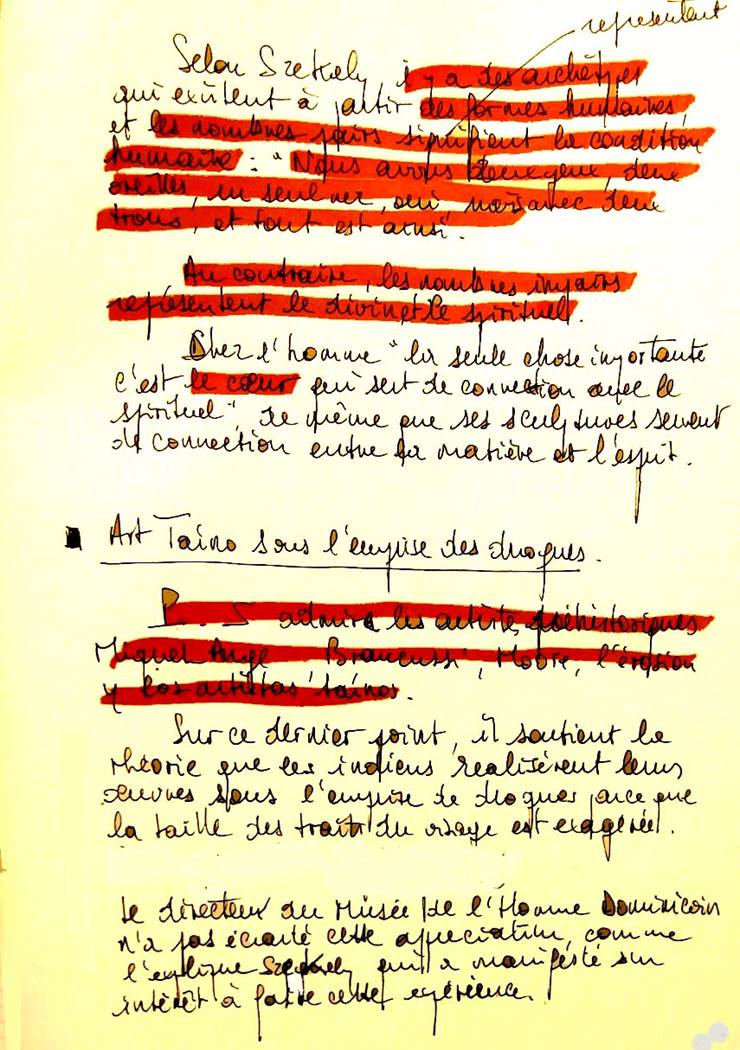 representent
Selon Szekely, il y a des archétypes
qui existent à partir des formes humaines,
et les nombres pairs signifient la condition
humaine : "Nous avons deux yeux, deux
oreilles, un seul nez, oui mais avec deux
trous, et tout est ainsi.
Au contraire, les nombres impairs
représentent le divin et le spirituel.
Chez l'homme "la seule chose importante
c'est le cœur qui sert de connection avec le
spirituel", de même que ses sculptures servent
de connection entre la matière et l'esprit.
Art Taïno sous l'emprise des drogues.
P. S admire les artistes préhistoriques
Miguel Ange Brancussi, Moore, l'érosion
y los artistas taínos.
Sur ce dernier point, il soutient la
théorie que les indiens realisèrent leurs
œuvres sous l'emprise de drogues parce que
la taille des traits du visage est exagérée.
Le directeur du Musée de l'Homme Dominicain
n'a pas écarté cette apreciation, comme
l'explique Szekely qui a manifesté son
intérêt à faire cette expérience.